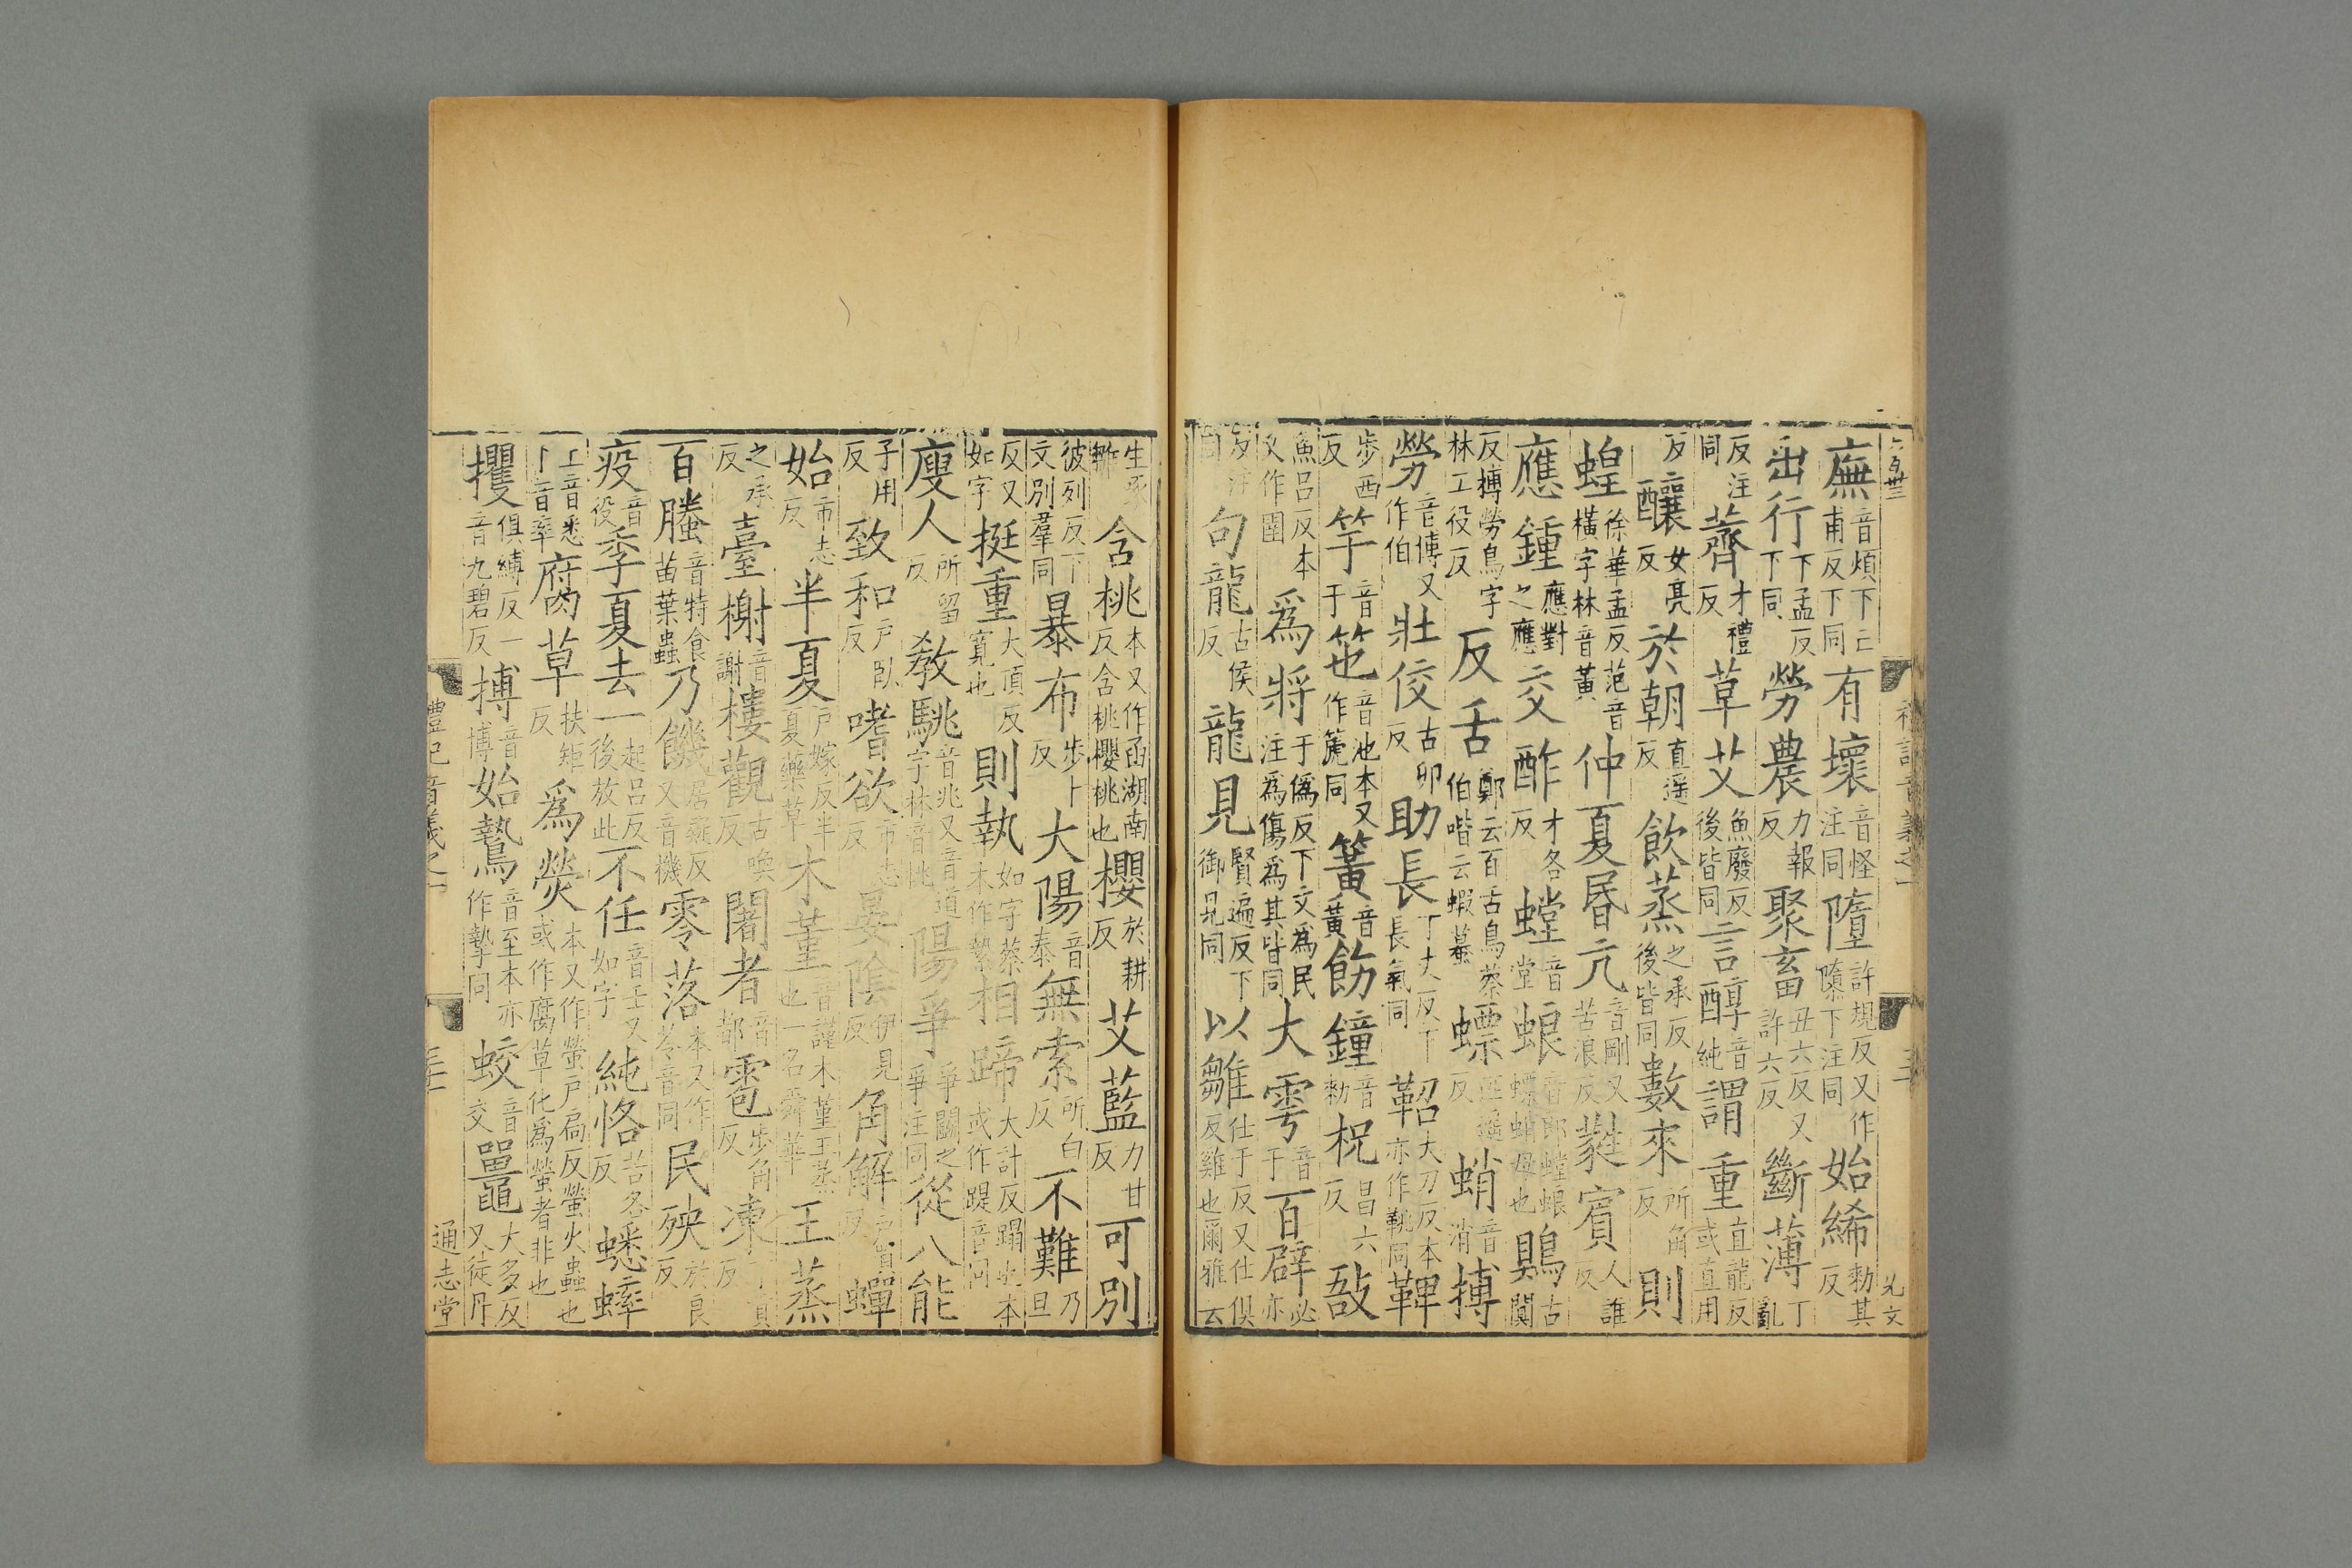 廡音煩下亡甫反下同有壞音怪注同隳許規反又作隓下注同始絺勑其反
出行下孟反下同勞農力報反聚畜丑六反又許六反斷薄丁亂
反注同薺才禮反草艾魚廢反後皆同言醇音純謂重直龍反或直用
反釀女亮反於朝直遥反飲蒸之承反後皆同數來所角反則
蝗徐華孟反范音橫字林音黃仲夏昬亢音剛又苦浪反蕤賓人誰反
應鍾應對之應交酢才各反螳音堂蜋音郎螳蜋螵蛸母也鶪古闃
反搏勞鳥字林工役反反舌鄭云百舌鳥蔡伯喈云蝦蟇螵匹遥反蛸音消搏
勞音博又作伯壯佼古卯反助長丁丈反下長氣同鞀大刀反本亦作鞉同鞞
步西反竽音于笹音池本又作箎同簧音黃飭鐘音勑柷昌六反敔
魚呂反本又作圉為將于僞反下文為民注為傷為其皆同大雩音于百辟必亦
反注同句龍古侯反龍見賢遍反下御見同以雛仕于反又仕俱反雞也爾雅云
生噣雛含桃本又作函湖南反含桃櫻桃也櫻於耕反艾藍力甘反可別
彼列反下文別羣同暴布步卜反大陽音泰無索所白反不難乃旦
反又如字挺重大頂反寬也則執如字蔡本作縶相蹄大計反蹋也本或作踶音同
廋人所留反敎駣音兆又音道字林音桃陽爭爭鬭之爭注同從八能
子用反致和戶臥反嗜欲市志反晏陰伊見反角解戶買反蟬
始市志反半夏戶嫁反半夏藥草木菫音謹木菫王蒸也一名舜華王蒸
之承反臺榭音謝樓觀古喚反闍者音都雹步角反凍丁貢反
百螣音特食苗葉蟲乃饑居疑反又音機零落本又作苓音同民殃於良反
疫音役季夏去一起呂反後放此不任音壬又如字純恪苦各反蟋蟀
上音悉下音率腐草扶矩反為熒本又作螢戶扃反螢火蟲也或作腐草化為螢者非也
攫俱縛反一音九碧反搏音博始鷙音至本亦作摯同蛟音交鼉大多反又徒丹
禮記音義之一
通志堂